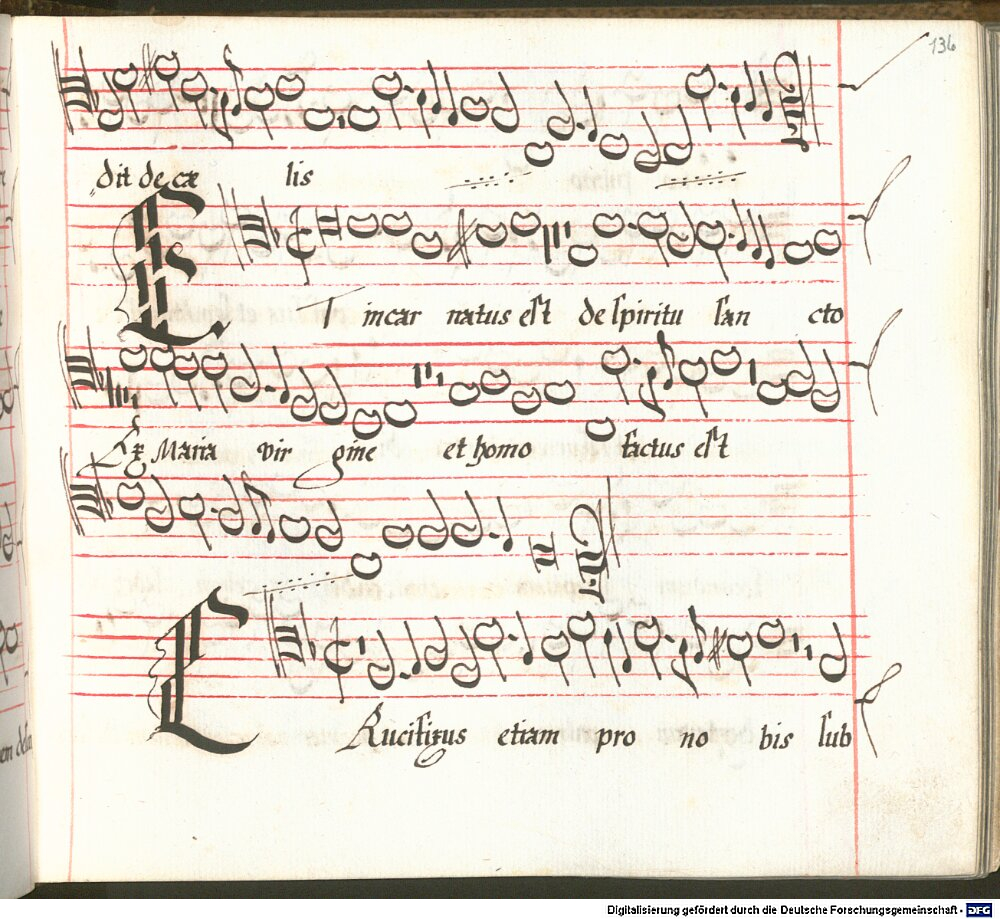 136
dit de cæ lis
ET incar natus est de spiritu san cto
Ex Maria vir gine et homo factus est
CRucifixus etiam pro no bis sub
Digitalisierung gefördert durch die Deutsche Forschungsgemeinschaft - DFG